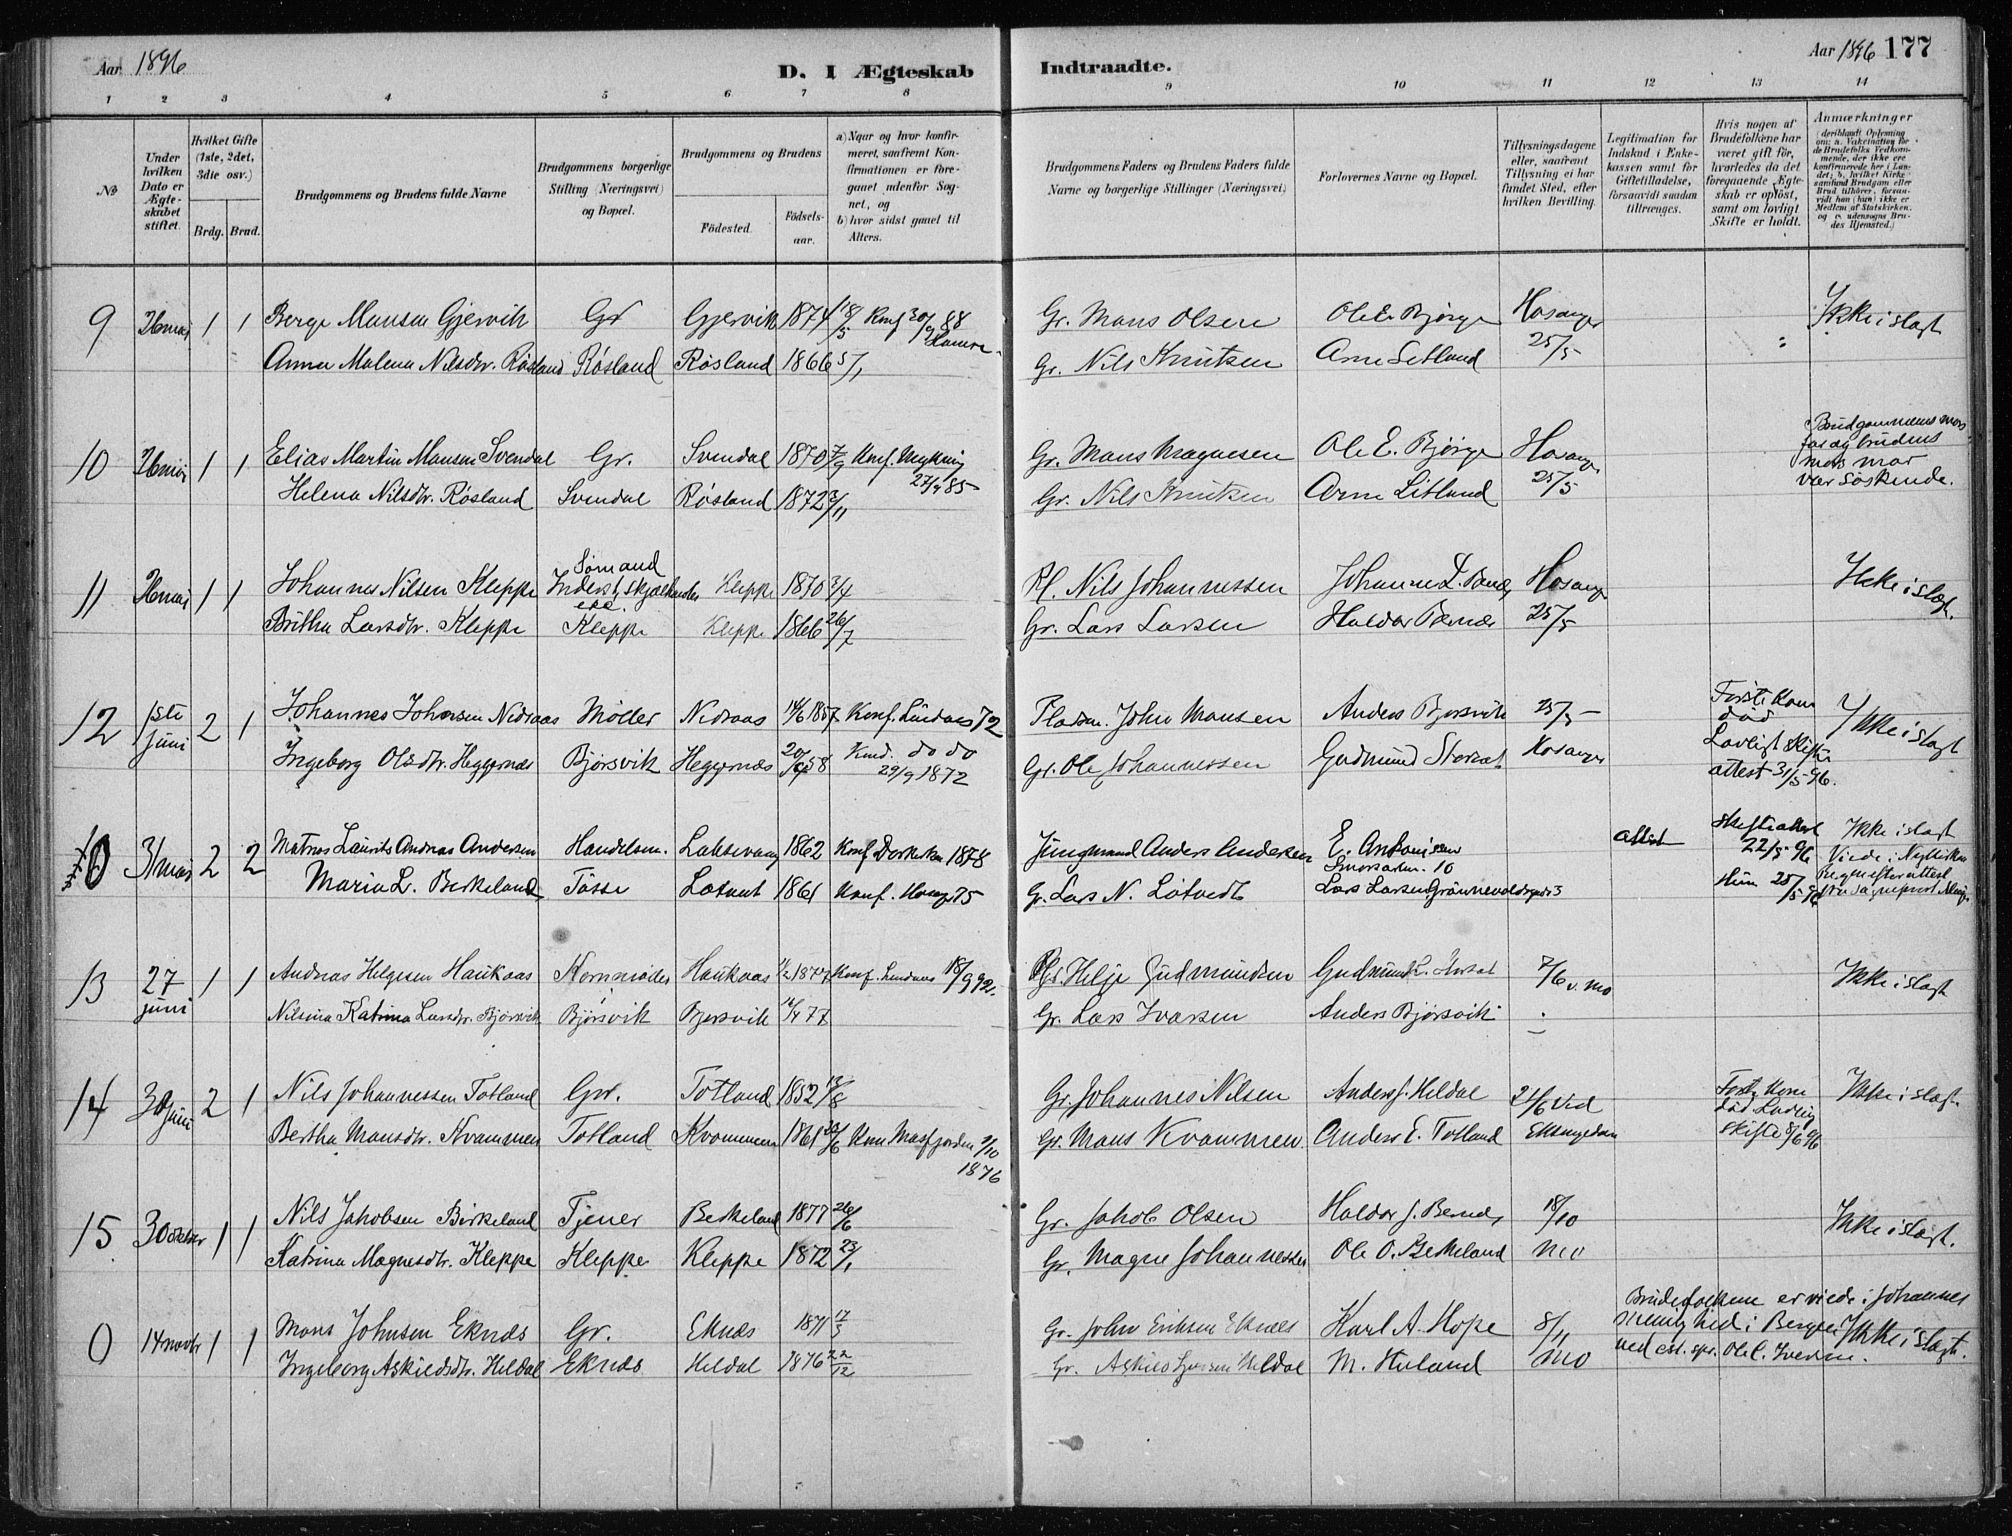 Aar 1896
D. I Ægteskab
Indtraadte.
Aar 1896 177
1 2 3 4 5 6 7 8 9 10 11 12 13 14
No
Under hvilken Dato er Ægteskabet stiftet.
Hvilket Gifte (1ste, 2det, 3die osv.)
Brdg. Brud.
Brudgommens og Brudens fulde Navne
Brudgommens borgerlige Stilling (Næringsvei) og Bopæl.
Brudgommens og Brudens
Födested.
Födselsaar.
a) Naar og hvor konfirmeret, saafremt Konfirmationen er foregaaet udenfor Sognet, og
b) hvor sidst gaaet til Alters.
Brudgommens Faders og Brudens Faders fulde Navne og borgerlige Stillinger (Næringsvei)
Forlovernes Navne og Bopæl.
Tillysningsdagene eller, saafremt Tillysning ei har fundet Sted, efter hvilken Bevilling.
Legitimation for Indskud i Enkekassen samt for Giftetilladelse, forsaavidt saadan tiltrænges.
Hvis nogen af Brudefolkene har været gift før, hvorledes da det foregaaende Ægteskab er opløst, samt om lovligt Skifte er holdt.
Anmærkninger (deriblandt Oplysning om: a. Vakcination for de Brudefolks Vedkommende, der ikke ere konfirmerede her i Landet; b. hvilket Kirkesamfund Brudgom eller Brud tilhører, forsaavidt han (hun) ikke er Medlem af Statskirken, og c. udensogns Brudes Hjemsted.)
9 26 mai 1 1 Berge Mansen Gjervik Gr Gjervik 1874 18/5 Konf 30/9 88 Hamre Gr. Mans Olsen Ole E. Bjørge Hosanger Ikke i slægt
Anna Malena Nilsdtr. Røsland Røsland Røsland 1866 5/1 Gr. Nils Knutsen Arne Litland 25/5
10 26 mai 1 1 Elias Martin Mansen Svendal Gr. Svendal 1870 7/9 Konf. Mykking 27/9 85 Gr. Mans Magnesen Ole E. Bjørge Hosanger Brudgommens mors far og brudens mors mor var søskende.
Helena Nilsdtr. Røsland Svendal Røsland 1872 2/11 Gr. Nils Knutsen Arne Litland 25/5
11 26 mai 1 1 Johannes Nilsen Kleppe Sømand Kleppe 1870 3/4 Pl. Nils Johannessen Johannes Hosanger Ikke i slægt.
Britha Larsdtr. Kleppe Kleppe Kleppe 1866 26/7 Gr. Lars Larsen Haldor 25/5
12 1ste juni 2 1 Johannes Johnsen Nedraas Møller Nedraas 14/6 1857 Konf. Lindaas 72 Pladsm. John Mansen Anders Bjørsvik 25/5 Første Kone død Ikke i slægt
Ingeborg Olsdtr. Heggernæs Bjørsvik Heggernæs 58 Konf. do do 29/9 1872 Gr. Ole Johannessen Gudmund Hosanger Lovligt Skifte attest 31/5 96.
0 31 mai 2 2 Matnes Laurits Andreas Andersen Handelsm. Laksevaag 1862 Konf Domkirken 1878 Jungmand Anders Andersen E. Antonisen attest Skifteattest 22/5 96 Ikke i slægt
Maria L. Berkeland Tosse 1861 Konf. Hosanger 75 Gr. Lars N. Lotvedt Lars Larsen Hun 25/5 96 Viede i Nykirken
13 27 juni 1 1 Andreas Helgesen Haukaas Haukaas 1877 Konf. Lindaas 18/9 92. Helje Gudmundsen 7/6 v. Mo Ikke i slægt
Nilsina Katrina Larsdtr. Bjørsvik Bjørsvik Bjørsvik 16/4 77 Gr. Lars Ivarsen Anders Bjørsvik
14 30 juni 2 1 Nils Johannessen Totland Gr. Totland 1852 13/8 Gr. Johannes Nilsen Anders J. Heldal 21/6 ved Første Kone død Lovlig Ikke i slægt
Bertha Mansdtr. Kvammen Totland Kvammen 1861 Konf Masfjorden 1/10 1876 Gr. Mans Kvammen Anders E. Totland Eksingedalen skifte 8/6 96
15 30 oktober 1 1 Nils Jakobsen Birkeland Tjener Berkeland 1877 26/6 Gr. Jakob Olsen Haldor J. 18/10 Ikke i slægt.
Katrina Magnesdtr. Kleppe Kleppe Kleppe 1872 23/1 Gr. Magne Johannessen Ole O. Berkeland Mo
0 14 novbr 1 1 Mons Johnsen Eknæs Gr. Eknæs 1871 17/3 Gr. John Eriksen Eknæs Karl A. Hope 8/11 Brudefolkene er viede i Johannes menighed i Bergen Ikke i slægt.
Ingeborg Askildsdtr. Heldal Eknæs Heldal 1876 22/12 Gr. Heldal M. Huland Mo ved